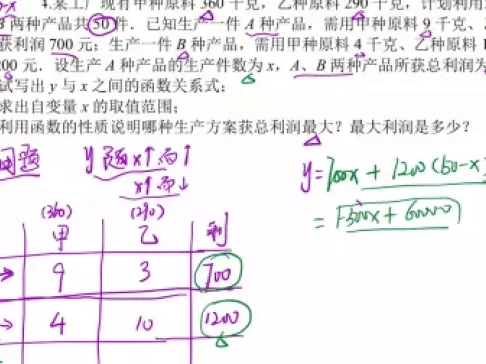 4.某工厂现有甲种原料 360 千克，乙种原料 290 千克，计划利用
两种产品共 50 件．已知生产一件 A 种产品，需用甲种原料 9 千克、
获利润 700 元；生产一件 B 种产品，需用甲种原料 4 千克、乙种原料 1
200 元．设生产 A 种产品的生产件数为 x，A、B 两种产品所获总利润为
试写出 y 与 x 之间的函数关系式；
求出自变量 x 的取值范围；
利用函数的性质说明哪种生产方案获总利润最大？最大利润是多少？
问题 y 随x↑而↑
x↑而↓
y=700x+1200(50-x)
=-500x+60000
(360) (290)
甲 乙 利
9 3 700
4 10 1200